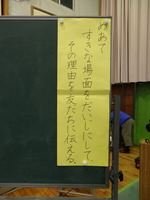 めあて
すきな場面をだいじにして
その理由を友だちに伝える。